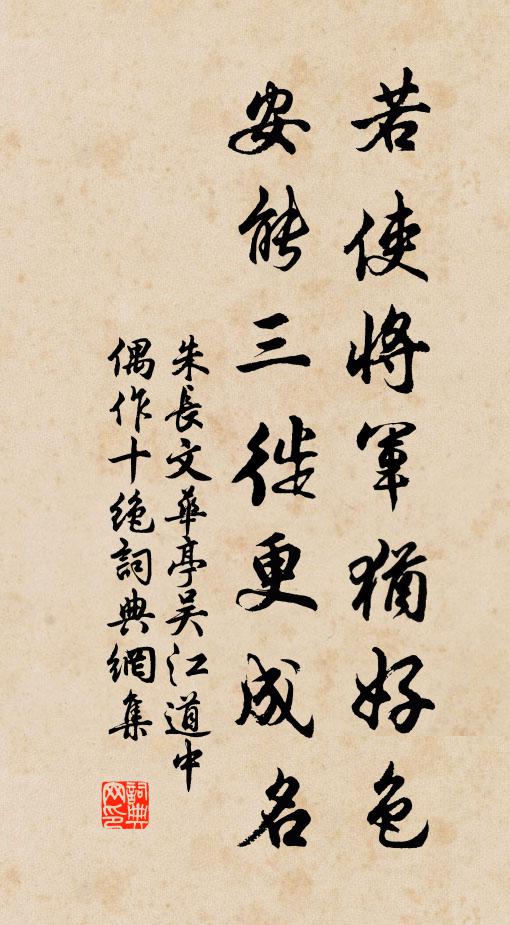 若使將軍猶好色
安能三徙更成名
朱長文華亭吴江道中
偶作十絶詞典網集
詞典
网印